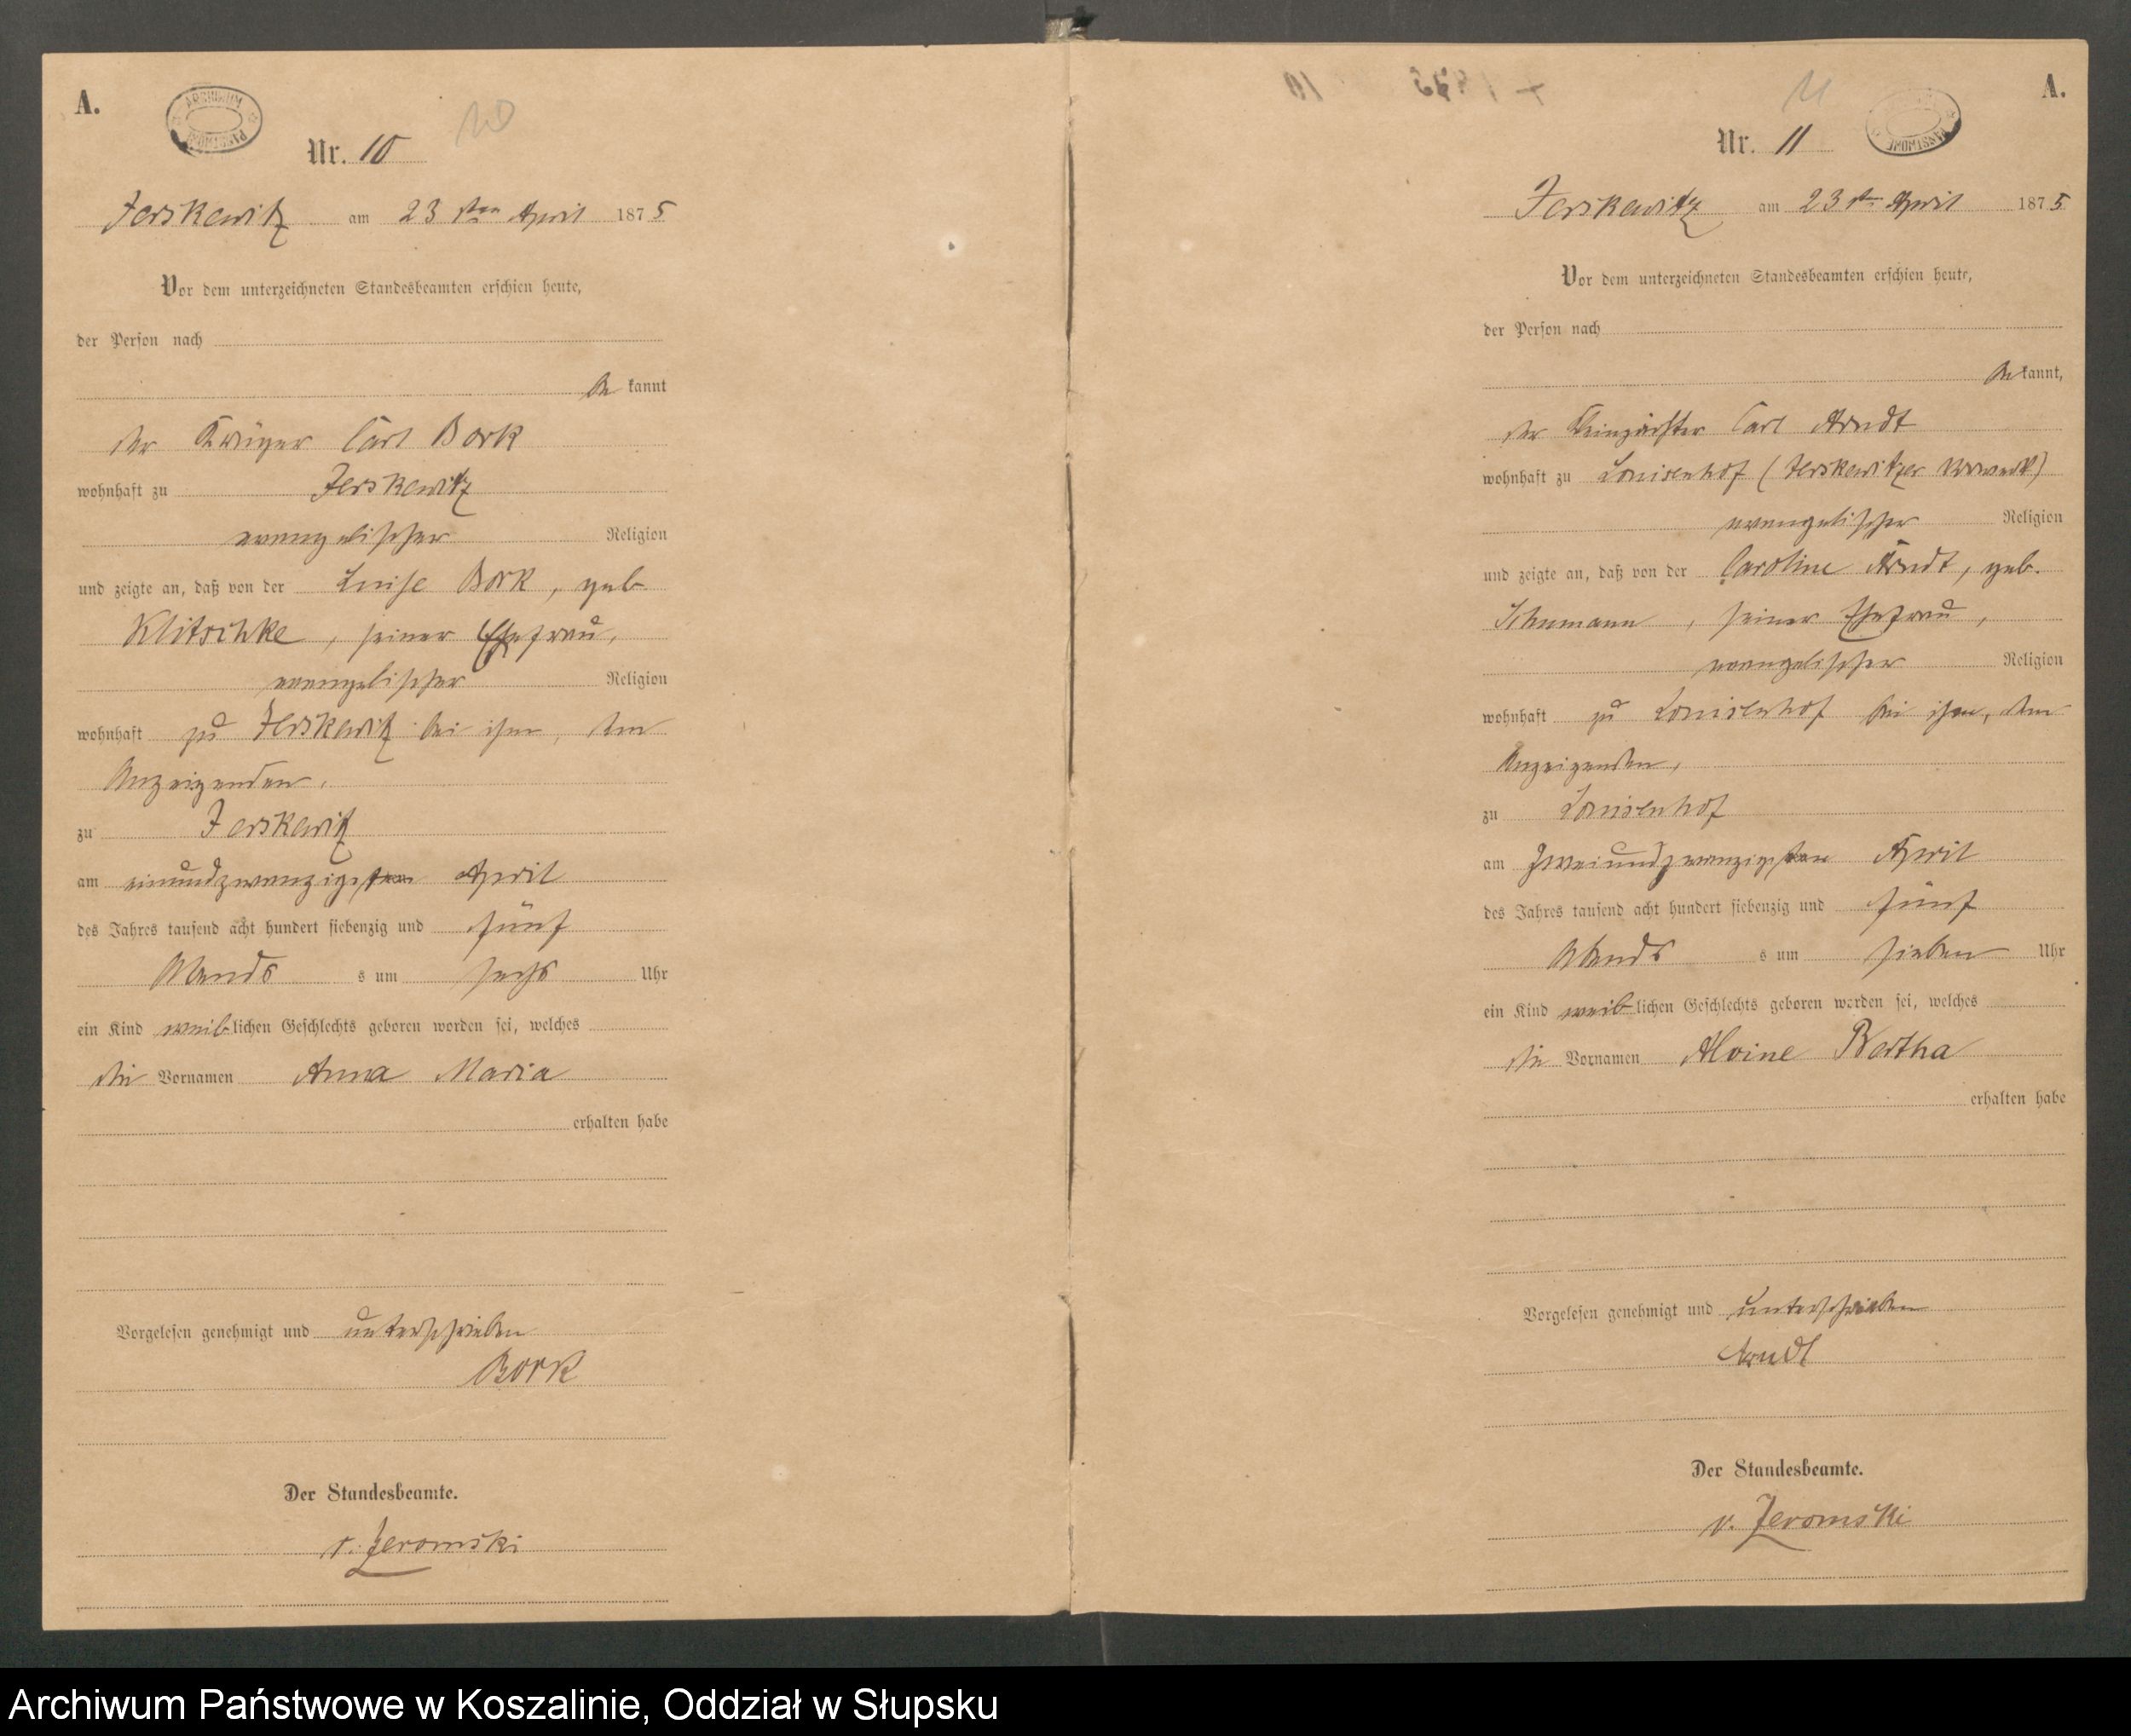 A.
ARCHIWUM
Nr. 10
10
Jerskewitz am 23 sten April 1875
Vor dem unterzeichneten Standesbeamten erschien heute,
der Person nach
be kannt
der Krüger Carl Bork
wohnhaft zu Jerskewitz
evangelischer Religion
und zeigte an, daß von der Luise Bork, geb
Klitschke, seiner Ehefrau,
evangelischer Religion
wohnhaft zu Jerskewitz bei ihm, dem
Anzeigenden,
zu Jerskewitz
am einundzwanzigsten April
des Jahres tausend acht hundert siebenzig und fünf
Abends s um sechs Uhr
ein Kind weiblichen Geschlechts geboren worden sei, welches
die Vornamen Anna Maria
erhalten habe
Vorgelesen genehmigt und unterschrieben
Bork
Der Standesbeamte.
v. Jeromski
A.
11
Nr. 11
Jerskewitz am 23 sten April 1875
Vor dem unterzeichneten Standesbeamten erschien heute,
der Person nach
be kannt,
der Carl Arndt
wohnhaft zu Louisenhof (Jerskewitzer Vorwerk)
evangelischer Religion
und zeigte an, daß von der Caroline Arndt, geb.
Schumann, seiner Ehefrau,
evangelischer Religion
wohnhaft zu Louisenhof bei ihm, dem
Anzeigenden,
zu Louisenhof
am zweiundzwanzigsten April
des Jahres tausend acht hundert siebenzig und fünf
Abends s um sieben Uhr
ein Kind weiblichen Geschlechts geboren worden sei, welches
die Vornamen Alvine Bertha
erhalten habe
Vorgelesen genehmigt und unterschrieben
Arndt
Der Standesbeamte.
v. Jeromski
Archiwum Państwowe w Koszalinie, Oddział w Słupsku